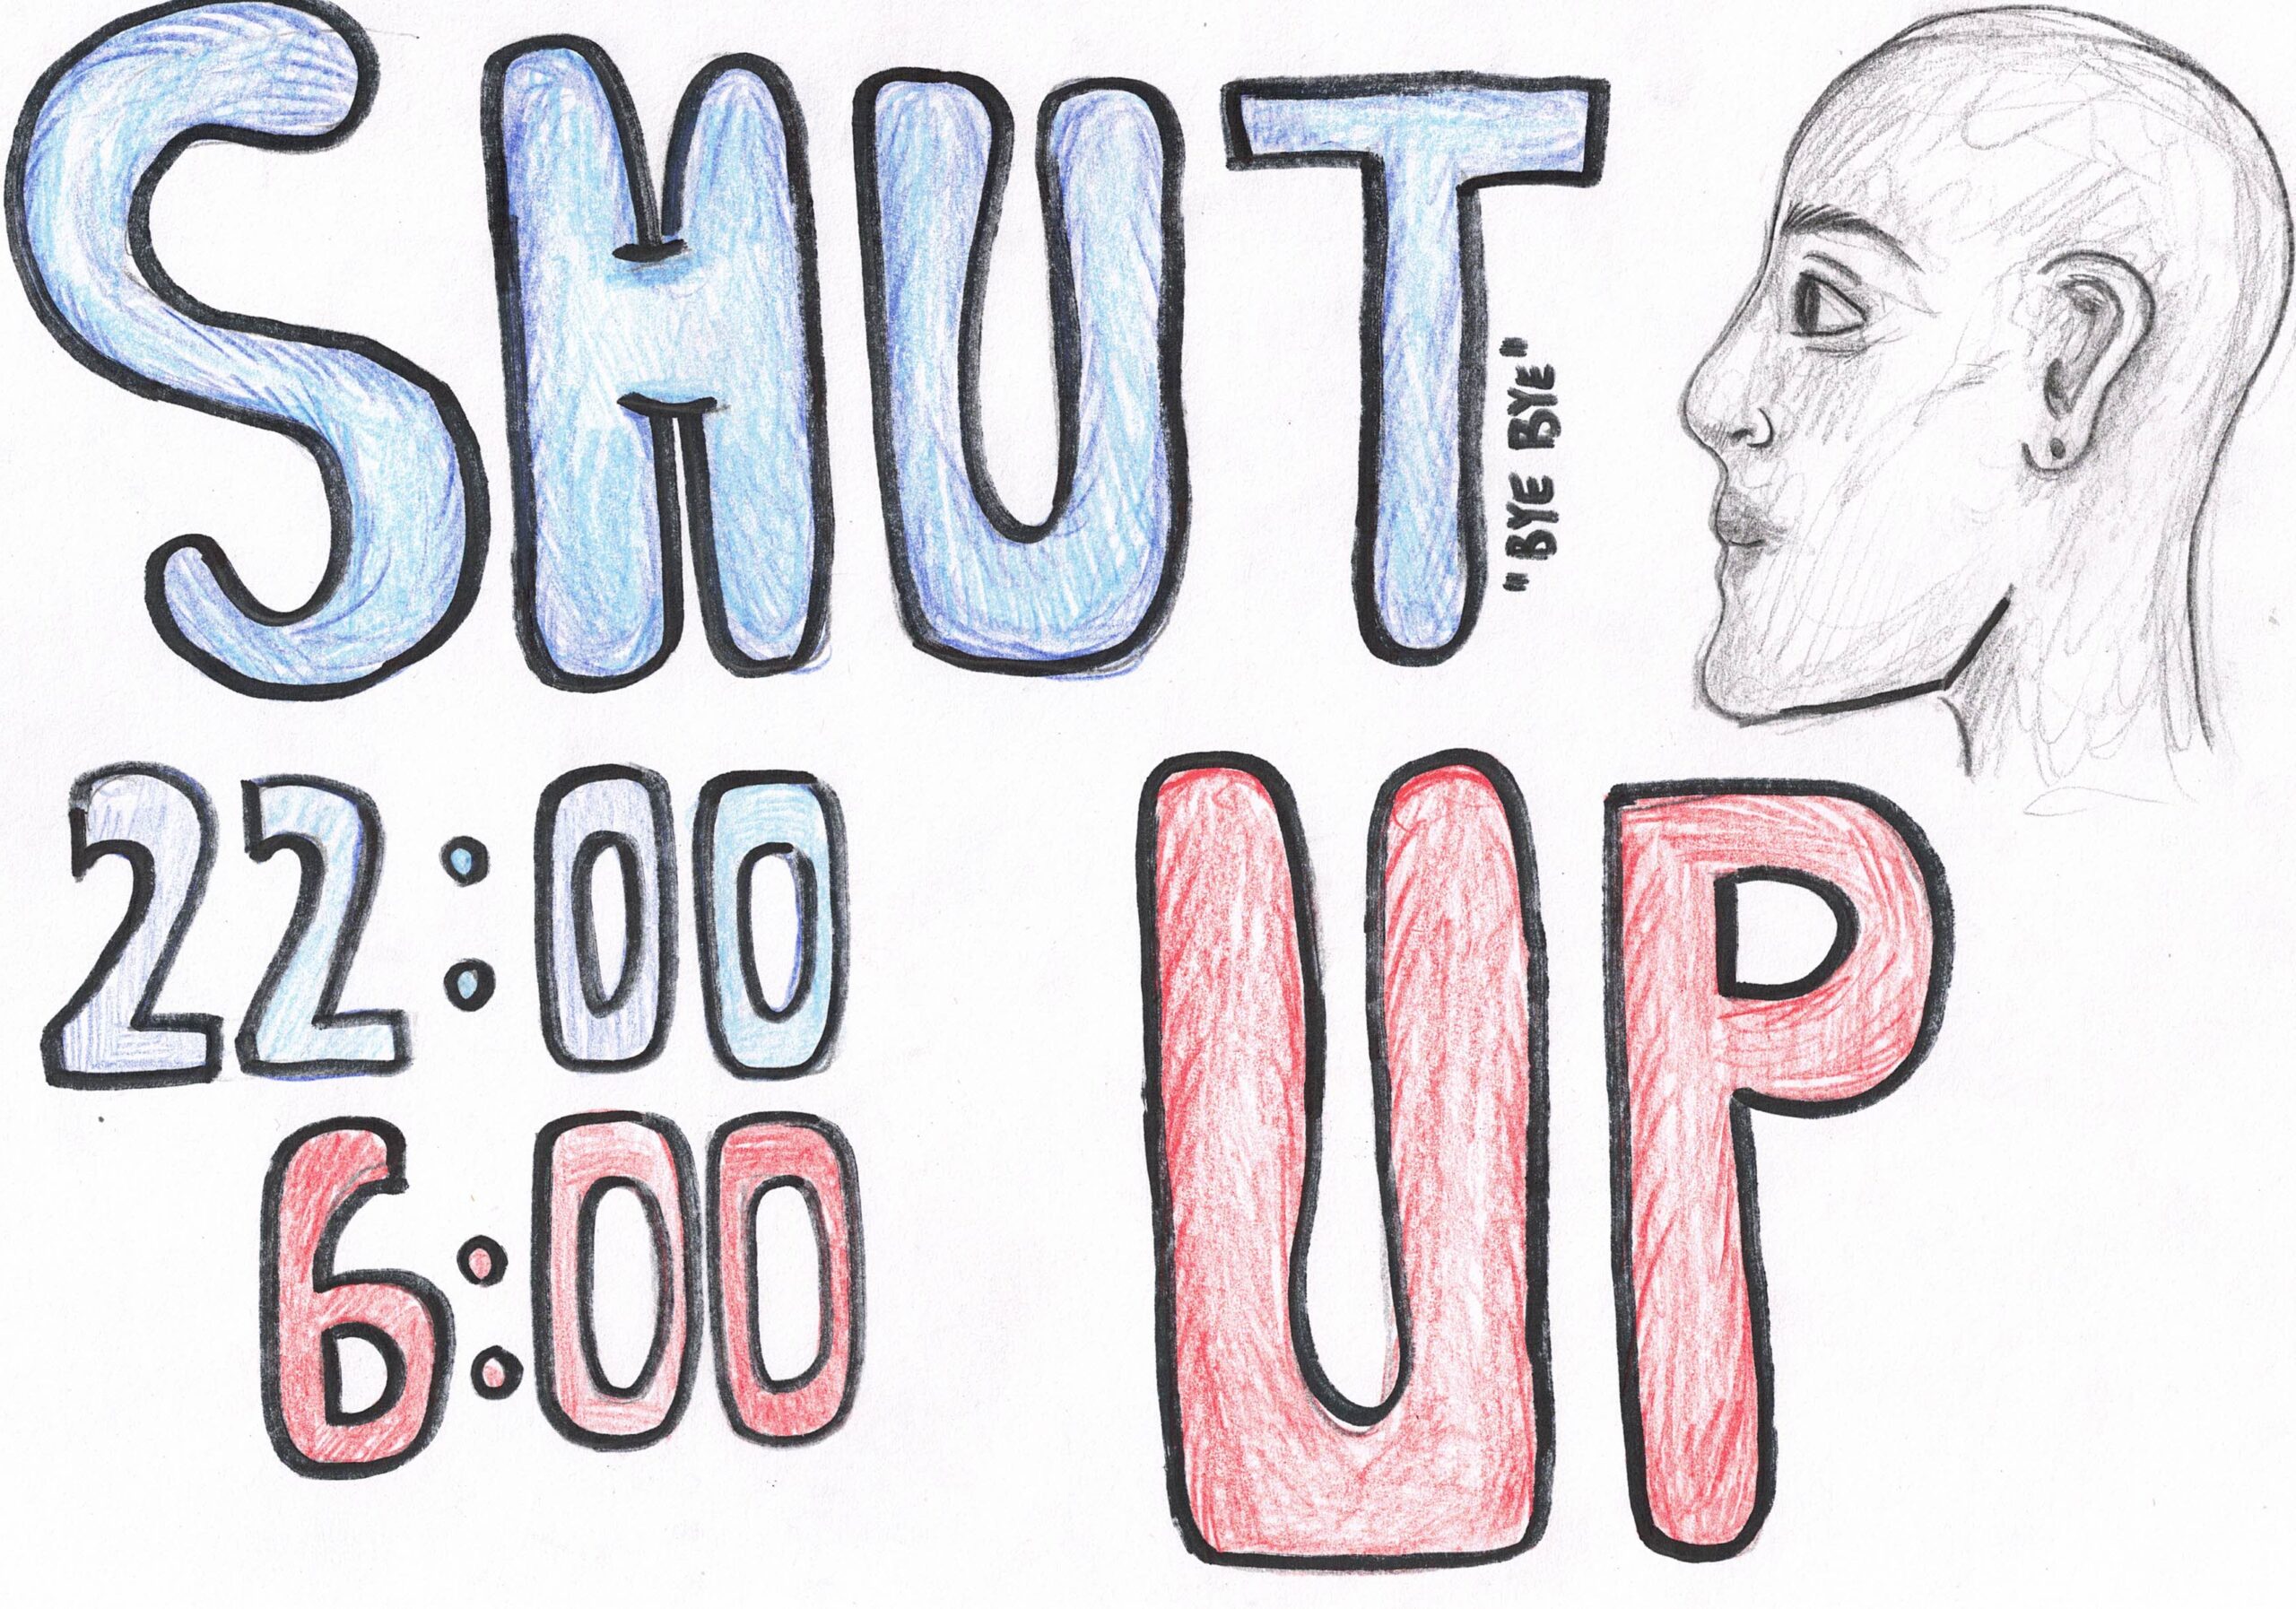 SHUT
"BYE BYE"
22:00
UP
6:00